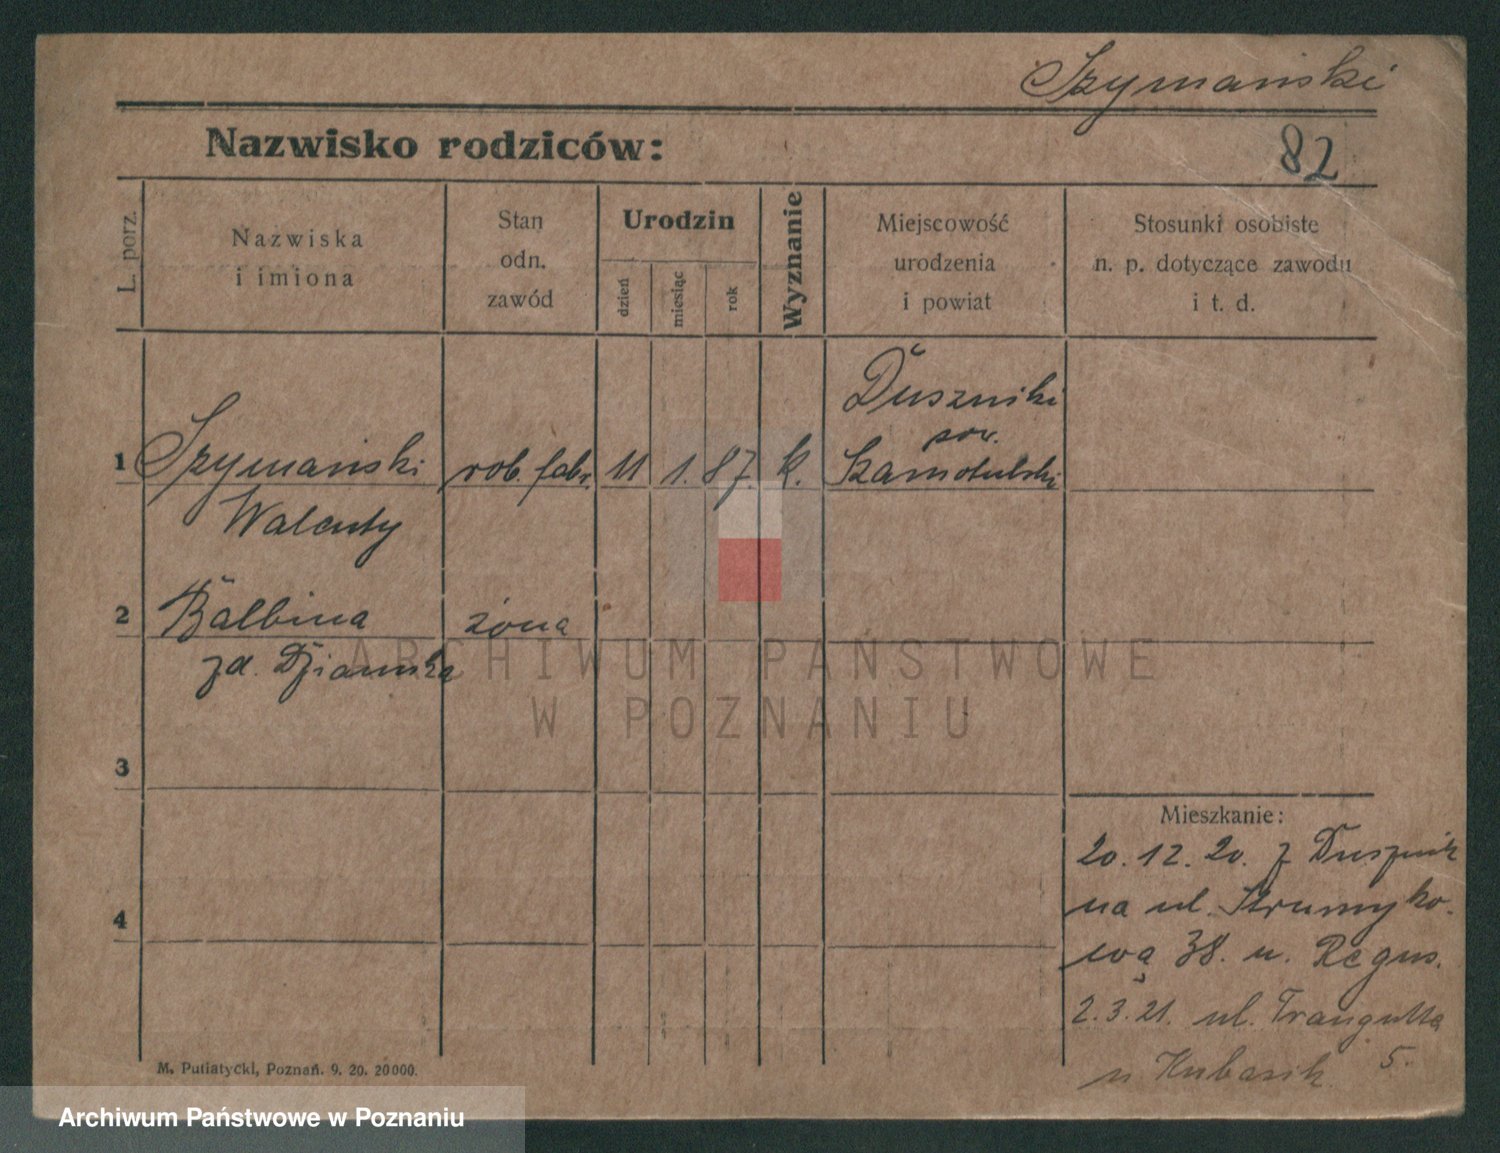 Szymański
Nazwisko rodziców:
82
L. porz.
Nazwiska
i imiona
Stan
odn.
zawód
Urodzin
dzień
miesiąc
rok
Wyznanie
Miejscowość
urodzenia
i powiat
Stosunki osobiste
n. p. dotyczące zawodu
i t. d.
Duszniki
pow.
1 Szymański rob. fabr. 11 1. 87. k. Szamotulski
Walenty
2 Balbina żona
zd.
3
4
Mieszkanie:
20.12.20. z Dusznik
na ul. Strumyko-
wą 38. u. Regus.
2.3.21. ul. Traugutta
u Kubasik 5.
M. Putiatycki, Poznań. 9. 20. 20000.
ARCHIWUM PAŃSTWOWE
W POZNANIU
Archiwum Państwowe w Poznaniu